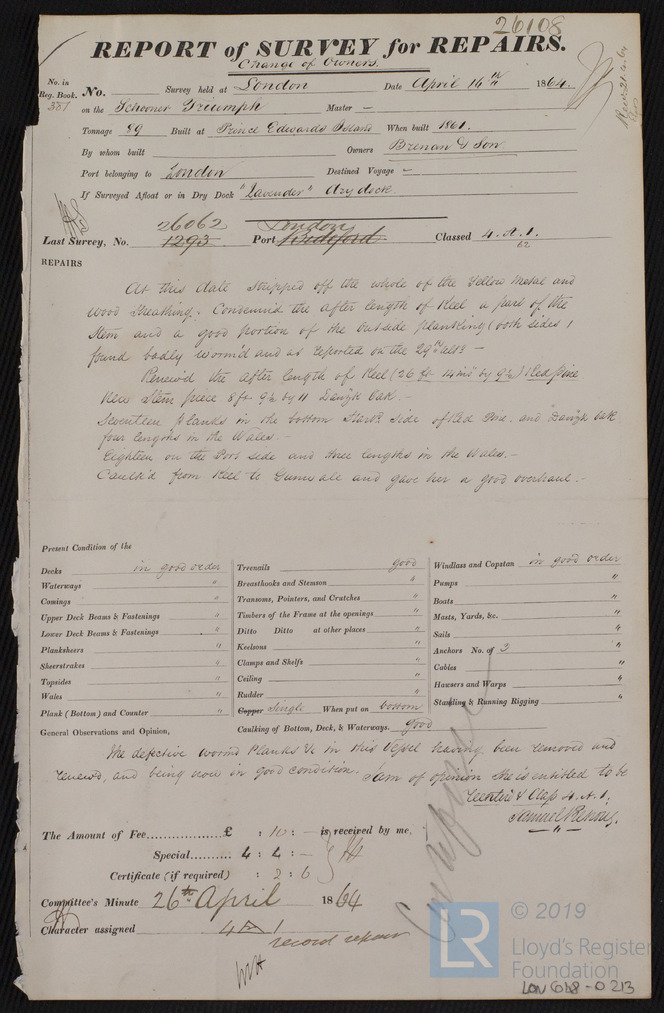 26108
REPORT of SURVEY for REPAIRS.
Change of Owners
No. in Reg. Book. No. Survey held at London Date April 16th 1864.
387 on the Schooner Triumph Master —
Tonnage 89 Built at Prince Edwards Island When built 1861.
By whom built Owners Brenan & Son
Port belonging to London Destined Voyage —
If Surveyed Afloat or in Dry Dock "Lavender" dry dock.
26062 London
Last Survey, No. 1293. Port Bideford Classed 4. A. 1.
62
REPAIRS
At this date stripped off the whole of the Yellow Metal and
Wood Sheathing. Condemned the after length of Keel a part of the
Stem and a good portion of the outside planking (both sides)
found badly worm'd and as reported on the 29th ulto —
Renew'd the after length of Keel (26 ft 14 ins by 9½) Red pine
New Stem piece 8 ft 9½ by 11 Danzk Oak. —
Seventeen planks in the bottom Starb side of Red Pine. and Danzk Oak
four lengths in the Wales. —
Eighteen on the Port side and three lengths in the Wales. —
Caulk'd from Keel to Gunwale and gave her a good overhaul. —
Present Condition of the
Decks in good order
Waterways "
Comings "
Upper Deck Beams & Fastenings "
Lower Deck Beams & Fastenings "
Planksheers "
Sheerstrakes "
Topsides "
Wales "
Plank (Bottom) and Counter "
Treenails good
Breasthooks and Stemson "
Transoms, Pointers, and Crutches "
Timbers of the Frame at the openings "
Ditto Ditto at other places "
Keelsons "
Clamps and Shelfs "
Ceiling "
Rudder "
Copper Single When put on bottom
Caulking of Bottom, Deck, & Waterways. good
Windlass and Capstan in good order
Pumps "
Boats "
Masts, Yards, &c. "
Sails "
Anchors No. of 3 "
Cables "
Hawsers and Warps "
Standing & Running Rigging "
General Observations and Opinion,
The defective worm'd Planks &c in this Vessel having been removed and
renew'd, and being now in good condition. I am of opinion she is entitled to be
& Class 4. A. 1.
Samuel
The Amount of Fee £ : 10 : — is received by me,
Special 4 : 4 : —
Certificate (if required) : 2 : 6
Committee's Minute 26th April 1864
Character assigned 4 A 1
record repair
© 2019
LR
Lloyd's Register
Foundation
LON 618-0213